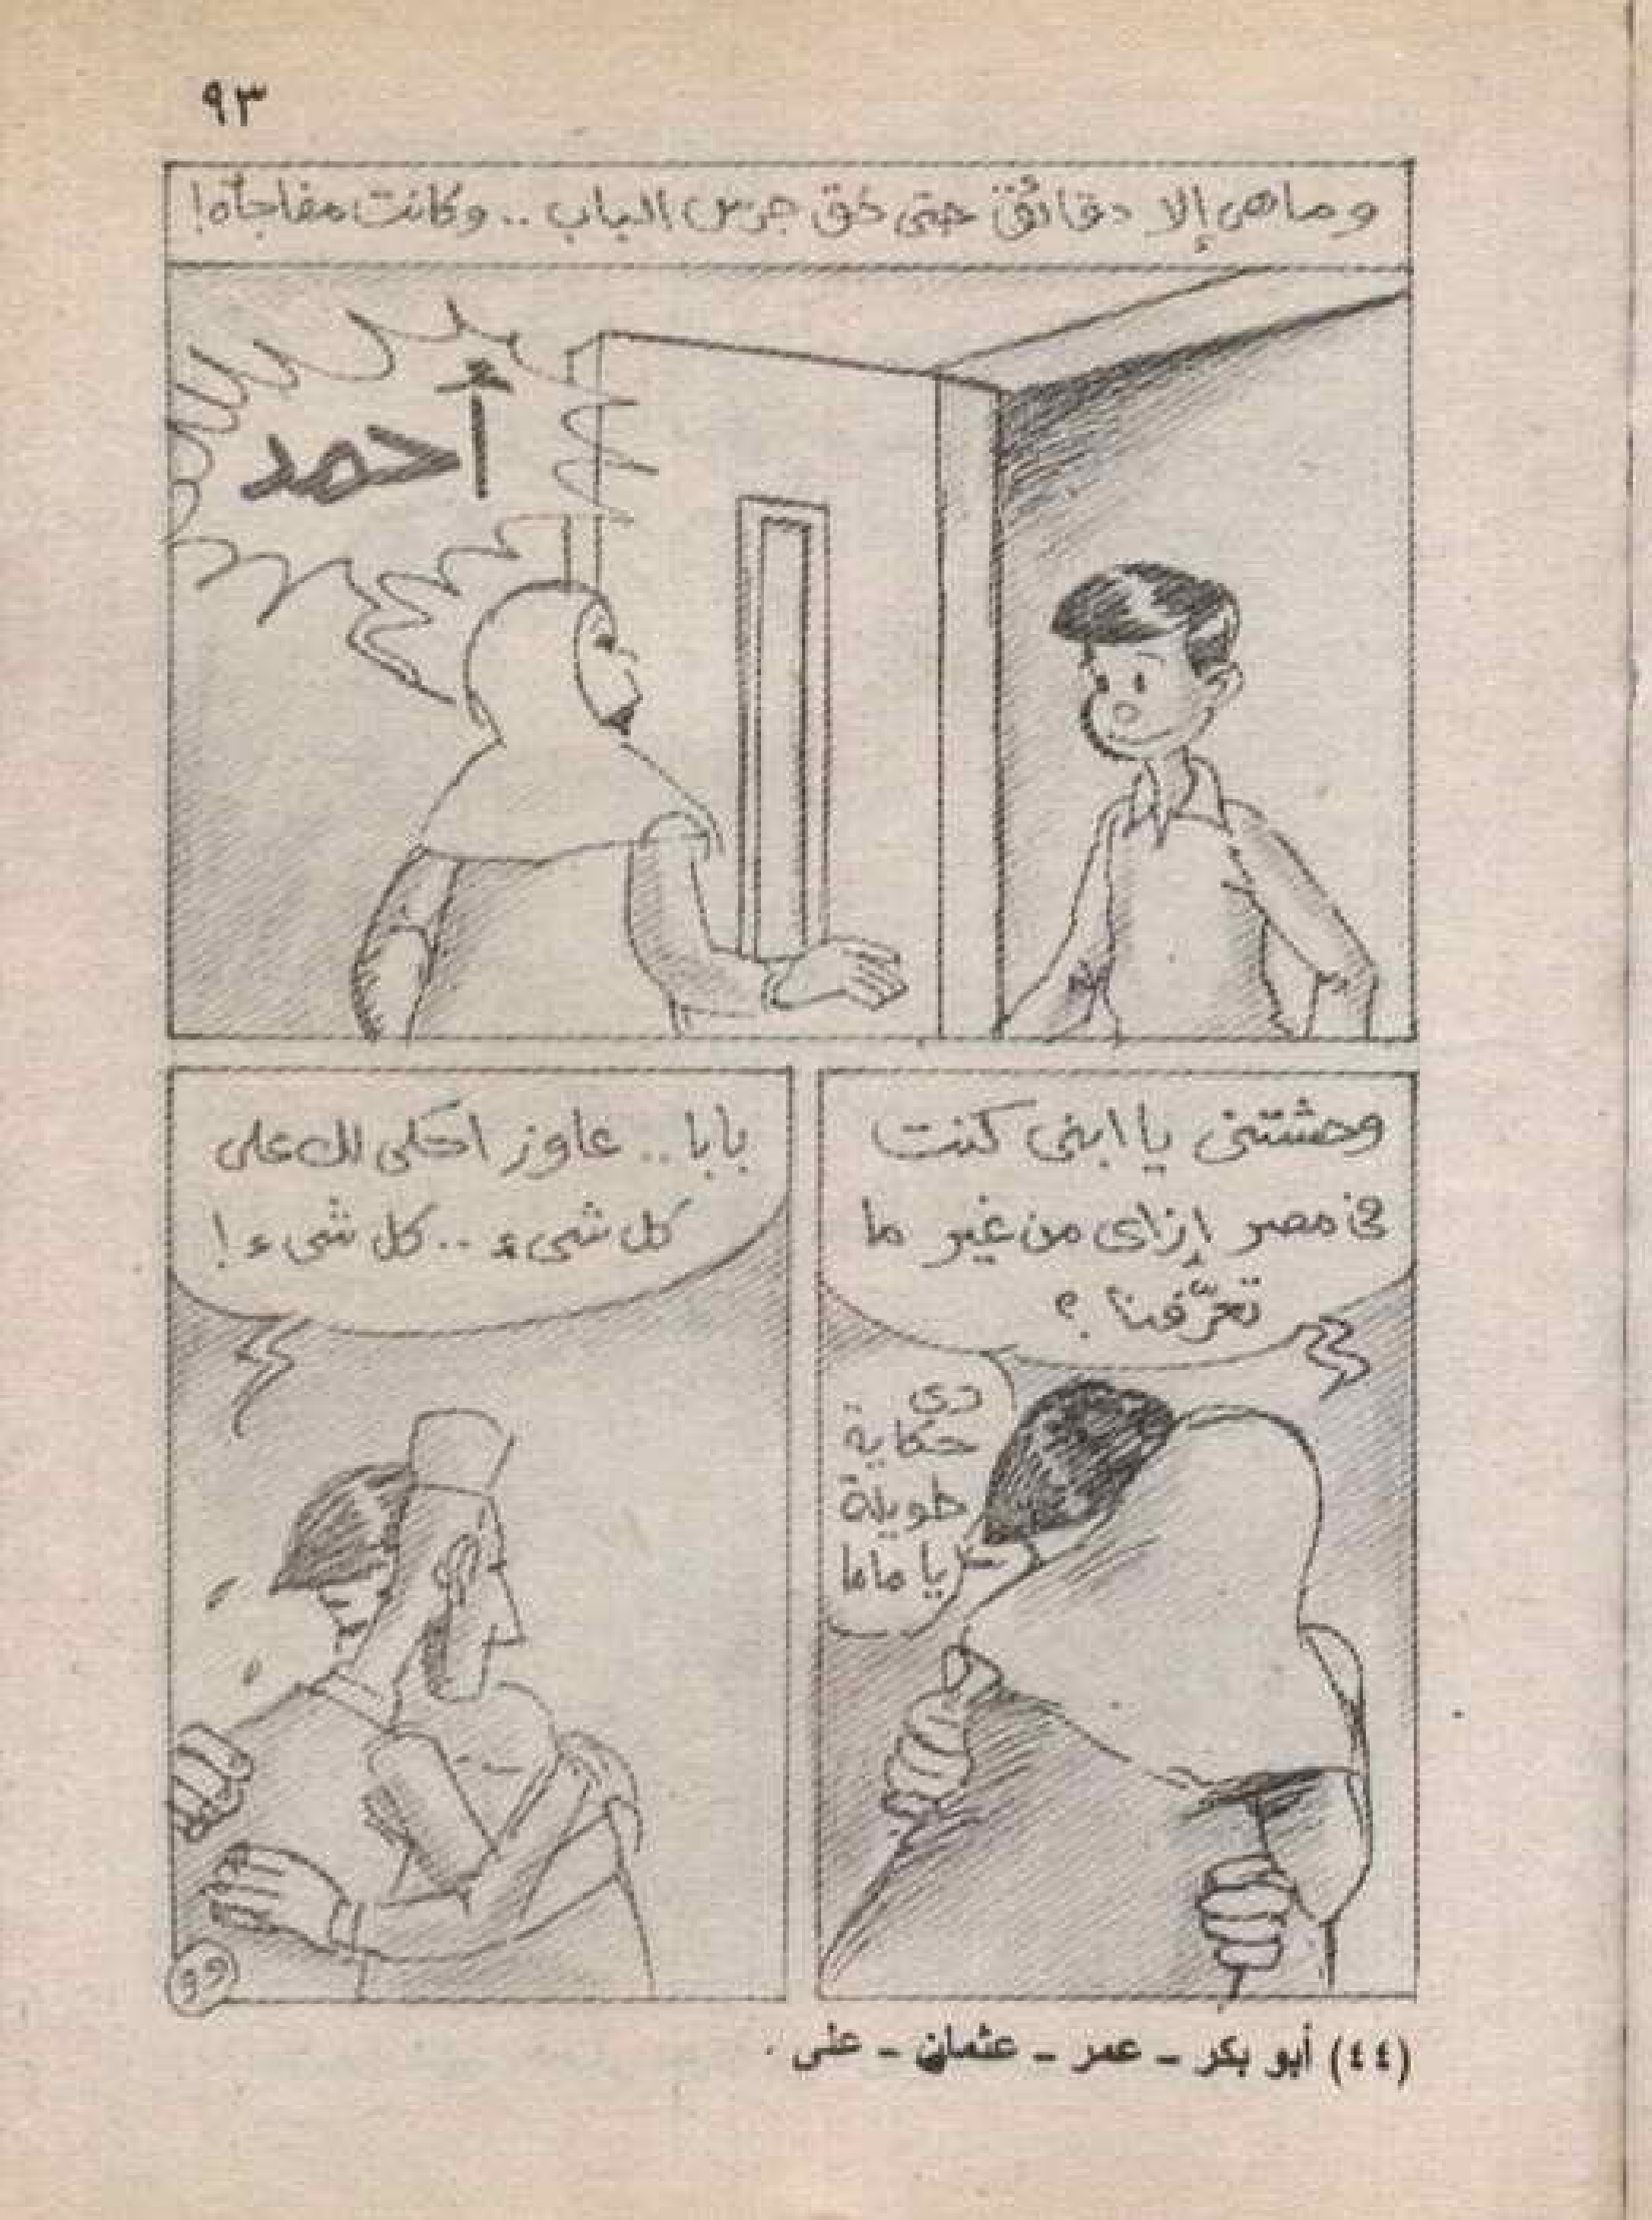 ٩٣
وماهى إلا دقائق حتى دق جرس الباب .. وكانت مفاجأة!
أحمد
وحشتنى يا ابنى كنت
فى مصر إزاى من غير ما
تعرَّفنا ؟
دى
حكاية
طويلة
يا ماما
بابا .. عاوز احكى لك على
كل شىء .. كل شىء !
(٤٤) أبو بكر ـ عمر ـ عثمان ـ على .